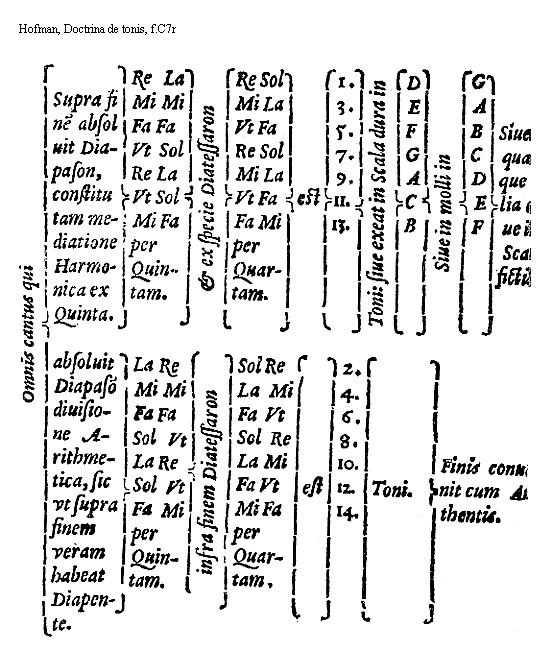 Hofman, Doctrina de tonis, f.C7r
Omnis cantus qui
Supra fi
nē absol
uit Dia-
pason,
constitu
tam me-
diatione
Harmo-
nica ex
Quinta.
Re La
Mi Mi
Fa Fa
Vt Sol
Re La
Vt Sol
Mi Fa
per
Quin-
tam.
& ex specie Diatessaron
Re Sol
Mi La
Vt Fa
Re Sol
Mi La
Vt Fa
Fa Mi
per
Quar-
tam.
est
1.
3.
5.
7.
9.
11.
13.
Toni: siue exeat in Scala dura in
D
E
F
G
A
C
B
Siue in molli in
G
A
B
C
D
E
F
Siue
qua
que
lia
ue
Sca
absoluit
Diapasō
diuisio-
ne A-
rithme-
tica, sic
vt supra
finem
veram
habeat
Diapen-
te.
La Re
Mi Mi
Fa Fa
Sol Vt
La Re
Sol Vt
Fa Mi
per
Quin-
tam.
infra finem Diatessaron
Sol Re
La Mi
Fa Vt
Sol Re
La Mi
Fa Vt
Mi Fa
per
Quar-
tam.
est
2.
4.
6.
8.
10.
12.
14.
Toni.
Finis conu
nit cum Au
thentis.